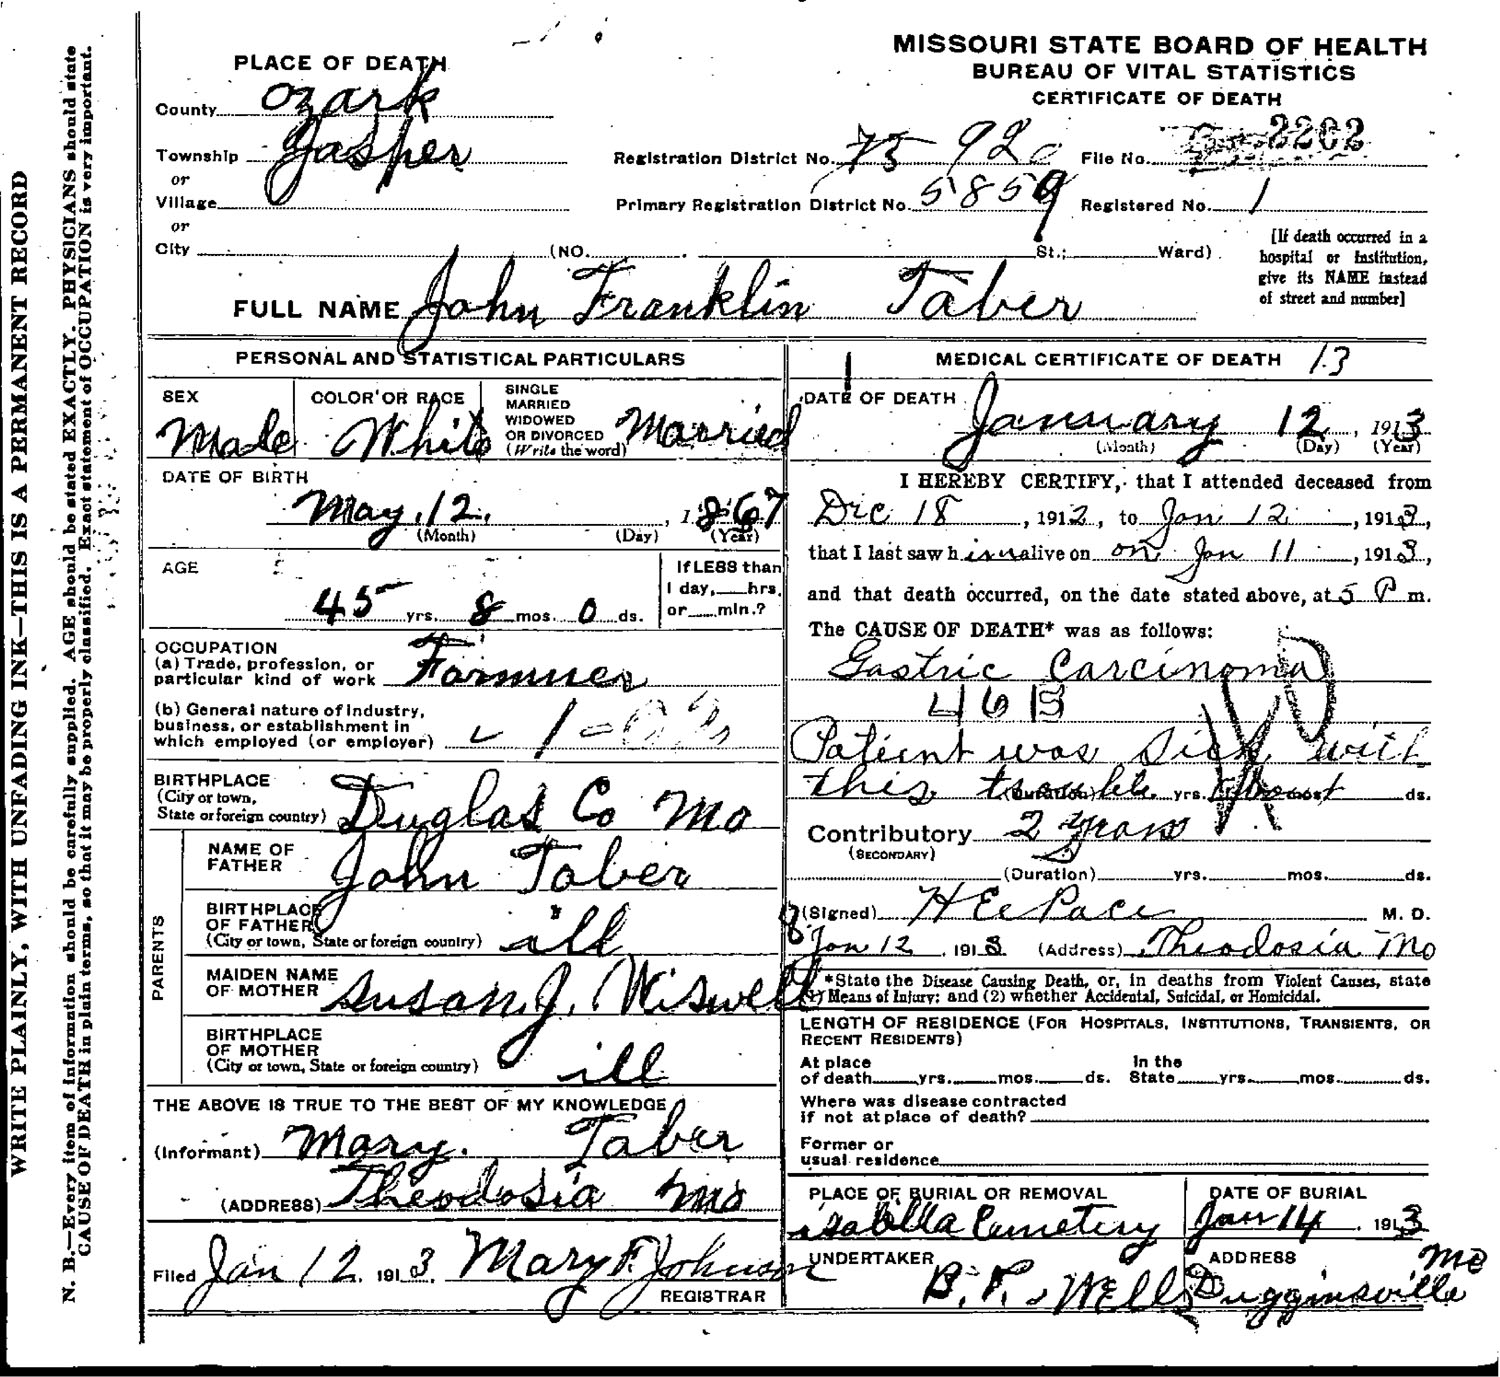 MISSOURI STATE BOARD OF HEALTH
BUREAU OF VITAL STATISTICS
CERTIFICATE OF DEATH
PLACE OF DEATH
County Ozark
Township Jasper
or
Village
or
City (NO. St.; Ward)
Registration District No. 75 920 File No. 2202
Primary Registration District No. 5859 Registered No. 1
[If death occurred in a
hospital or institution,
give its NAME instead
of street and number]
FULL NAME John Franklin Taber
PERSONAL AND STATISTICAL PARTICULARS
SEX
Male
COLOR OR RACE
White
SINGLE
MARRIED
WIDOWED
OR DIVORCED
(Write the word)
Married
DATE OF BIRTH
May. 12. , 1867
(Month) (Day) (Year)
AGE
45 yrs. 8 mos. 0 ds.
If LESS than
1 day, hrs.
or min.?
OCCUPATION
(a) Trade, profession, or
particular kind of work Farmner
(b) General nature of industry,
business, or establishment in
which employed (or employer)
BIRTHPLACE
(City or town,
State or foreign country) Duglas Co Mo
PARENTS
NAME OF
FATHER John Taber
BIRTHPLACE
OF FATHER
(City or town, State or foreign country) ill
MAIDEN NAME
OF MOTHER Susan. J. Wiswell
BIRTHPLACE
OF MOTHER
(City or town, State or foreign country) ill
THE ABOVE IS TRUE TO THE BEST OF MY KNOWLEDGE
(Informant) Mary. Taber
(ADDRESS) Theodosia Mo
Filed Jan 12 1913 Mary F. Johnson
REGISTRAR
MEDICAL CERTIFICATE OF DEATH 13
DATE OF DEATH
January 12 , 1913
(Month) (Day) (Year)
I HEREBY CERTIFY, that I attended deceased from
Dec 18 , 1912, to Jan 12 , 1913,
that I last saw him alive on on Jan 11 , 1913,
and that death occurred, on the date stated above, at 5 P m.
The CAUSE OF DEATH* was as follows:
Gastric Carcinoma
46B
Patient was sick with
this trouble (Duration) yrs. almost mos. ds.
Contributory 2 years
(SECONDARY)
(Duration) yrs. mos. ds.
(Signed) H E Pace M. D.
Jan 12 , 1913 (Address) Theodosia Mo
*State the Disease Causing Death, or, in deaths from Violent Causes, state
(1) Means of Injury; and (2) whether Accidental, Suicidal, or Homicidal.
LENGTH OF RESIDENCE (FOR HOSPITALS, INSTITUTIONS, TRANSIENTS, OR
RECENT RESIDENTS)
At place
of death yrs. mos. ds.
In the
State yrs. mos. ds.
Where was disease contracted
if not at place of death?
Former or
usual residence
PLACE OF BURIAL OR REMOVAL
isabella Cemetery
DATE OF BURIAL
Jan 14 , 1913
UNDERTAKER
B. F. Wells
ADDRESS
Dugginsville Mo
WRITE PLAINLY, WITH UNFADING INK—THIS IS A PERMANENT RECORD
N. B.—Every item of information should be carefully supplied. AGE should be stated EXACTLY. PHYSICIANS should state
CAUSE OF DEATH in plain terms, so that it may be properly classified. Exact statement of OCCUPATION is very important.